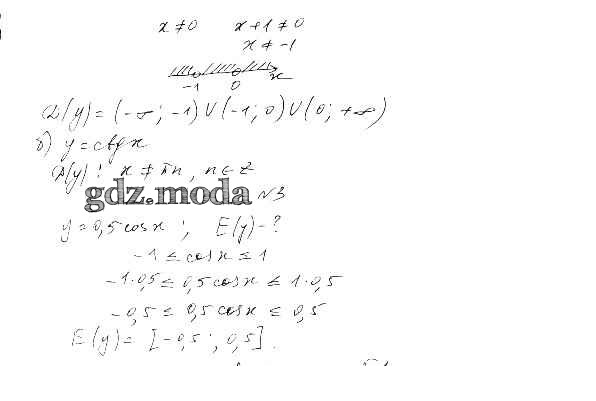 x ≠ 0   x+1 ≠ 0
x ≠ -1
-1   0   x
D(y) = (-∞; -1) ∪ (-1; 0) ∪ (0; +∞)
б) y = ctg x
D(y): x ≠ πn, n ∈ Z
gdz.moda
№3
y = 0,5 cos x ; E(y) - ?
-1 ≤ cos x ≤ 1
-1·0,5 ≤ 0,5 cos x ≤ 1·0,5
-0,5 ≤ 0,5 cos x ≤ 0,5
E(y) = [-0,5; 0,5].